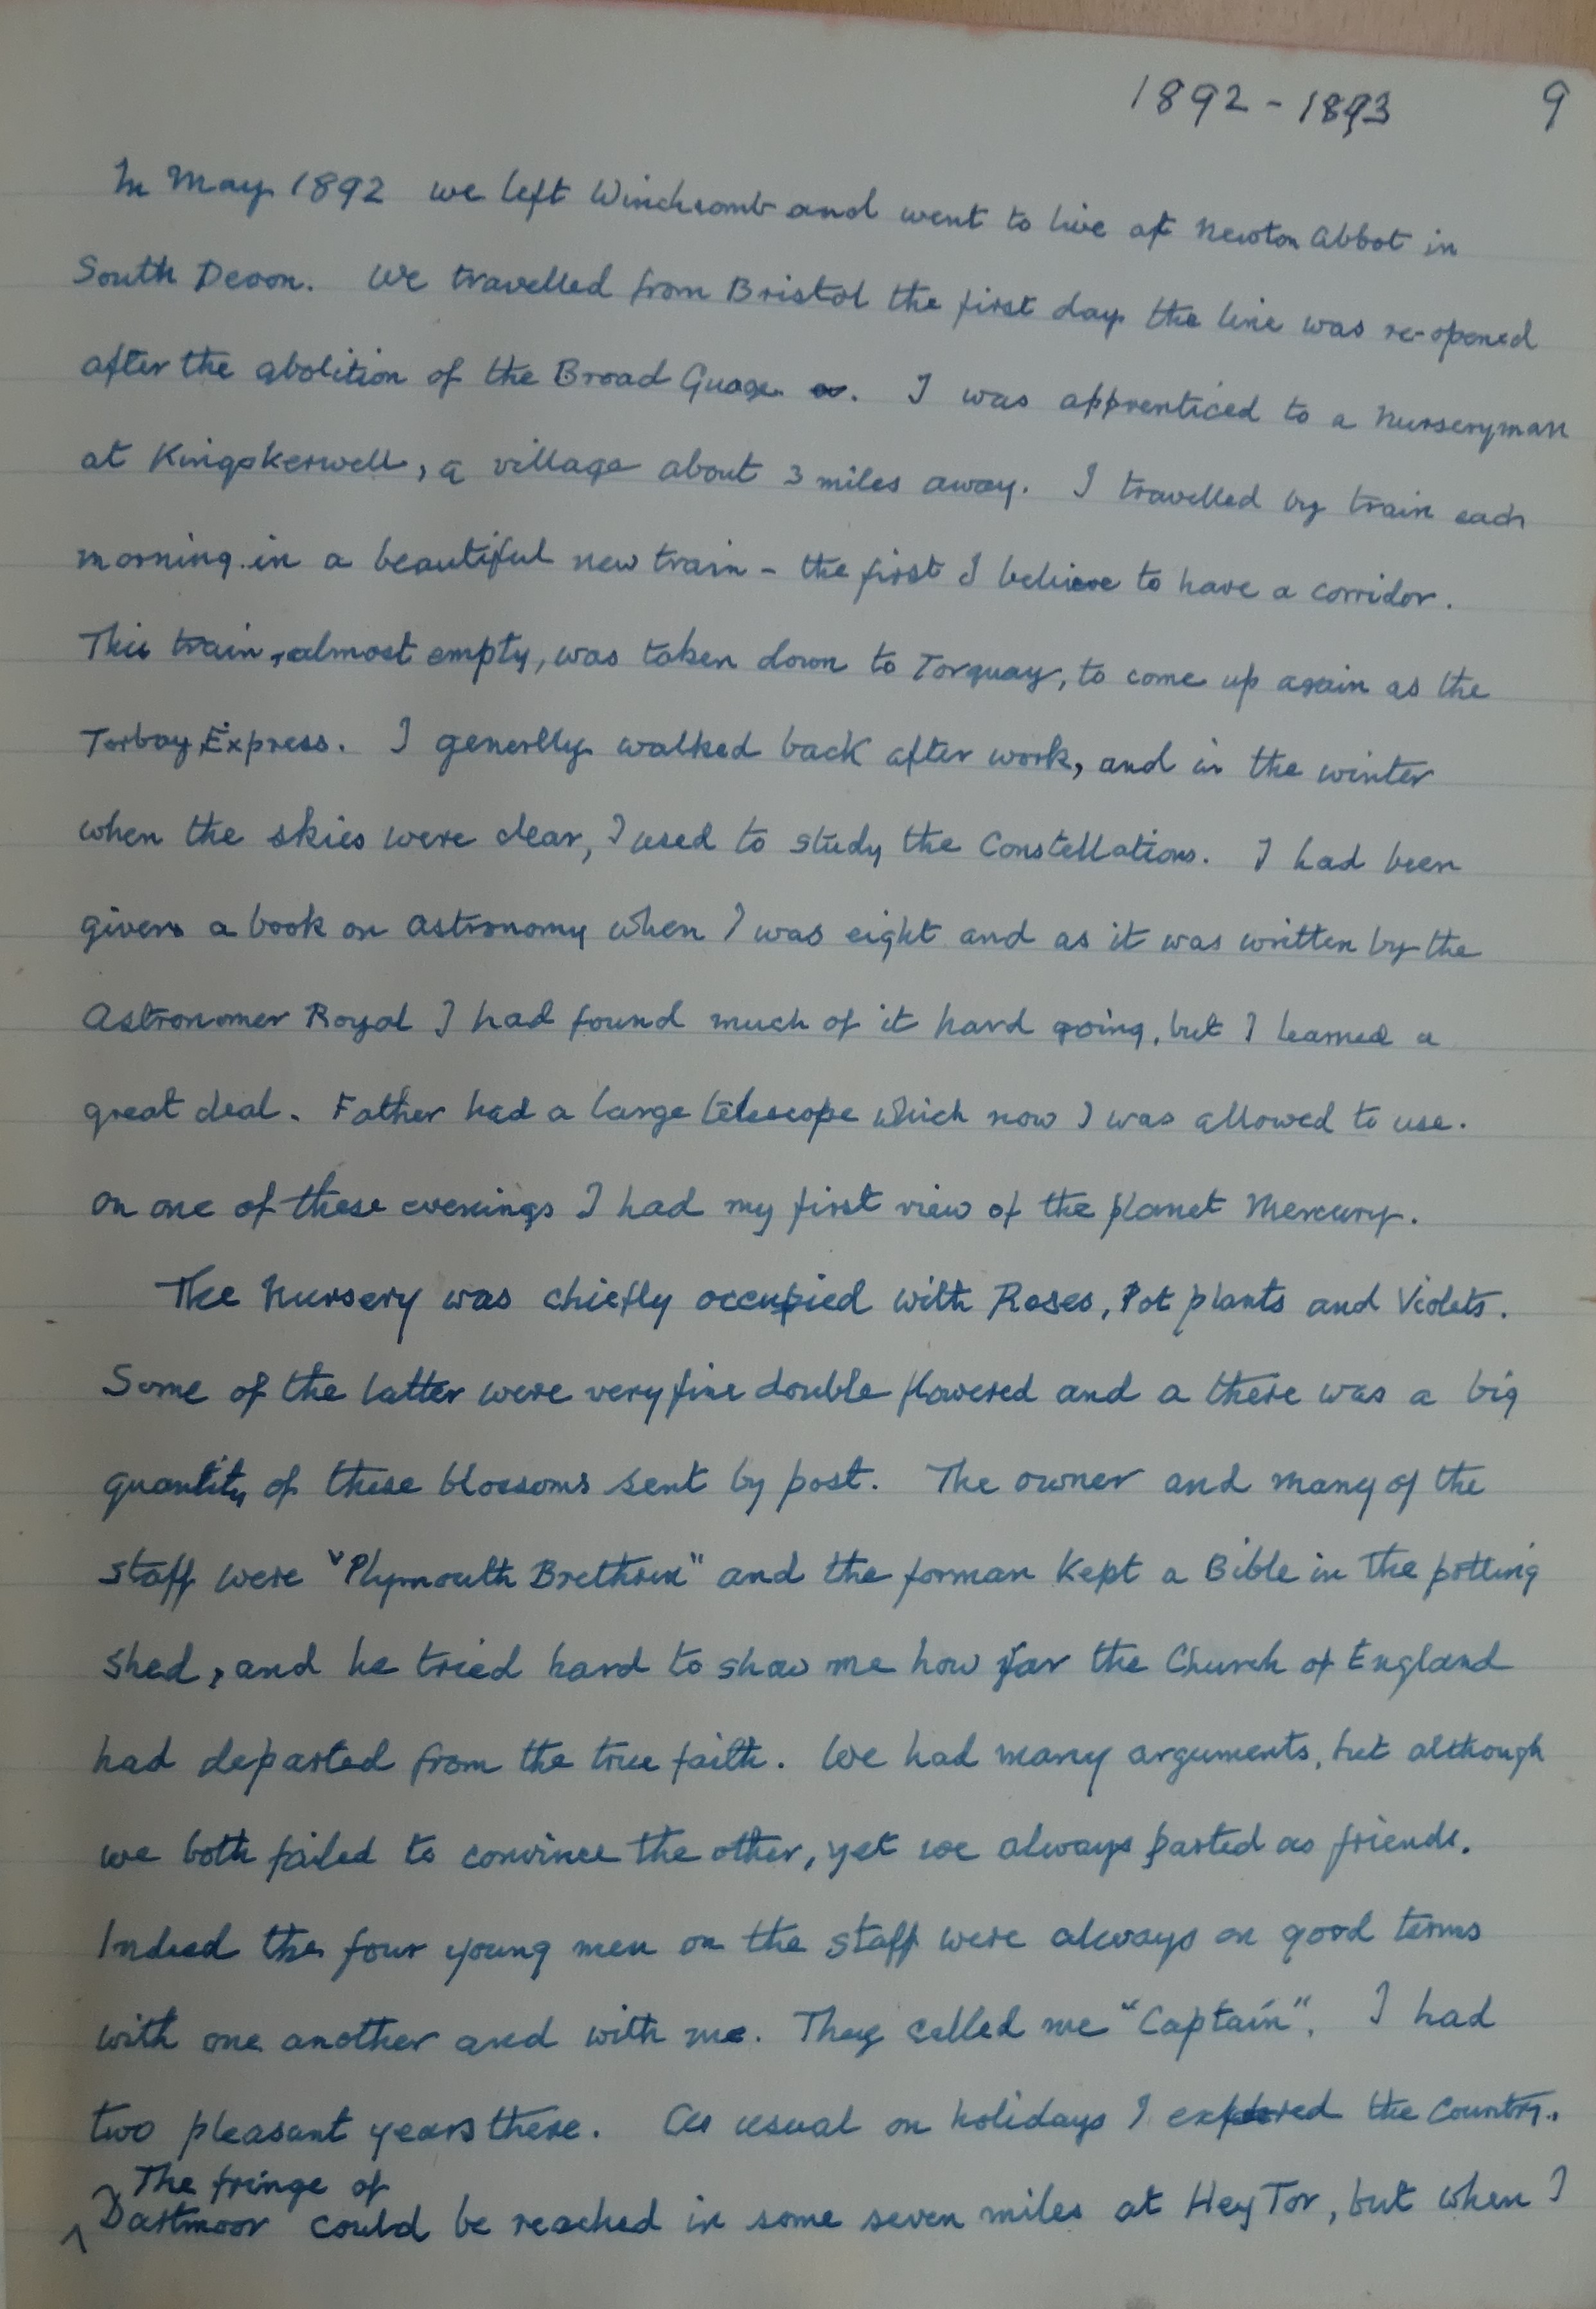 1892 - 1893 9
In May 1892 we left Winchcomb and went to live at Newton Abbot in
South Devon. We travelled from Bristol the first day the line was re-opened
after the abolition of the Broad Guage. I was apprenticed to a Nurseryman
at Kingskerwell, a village about 3 miles away. I travelled by train each
morning in a beautiful new train - the first I believe to have a corridor.
This train, almost empty, was taken down to Torquay, to come up again as the
Torbay Express. I generlly walked back after work, and in the winter
when the skies were clear, I used to study the Constellations. I had been
given a book on Astronomy when I was eight and as it was written by the
Astronomer Royal I had found much of it hard going, but I learned a
great deal. Father had a large telescope which now I was allowed to use.
On one of these evenings I had my first view of the planet Mercury.
The Nursery was chiefly occupied with Roses, Pot plants and Violets.
Some of the latter were very fine double flowered and a there was a big
quantity of these blossoms sent by post. The owner and many of the
staff were "Plymouth Brethren" and the forman kept a Bible in the potting
shed, and he tried hard to show me how far the Church of England
had departed from the true faith. We had many arguments, but although
we both failed to convince the other, yet we always parted as friends.
Indeed the four young men on the staff were always on good terms
with one another and with me. They called me "Captain". I had
two pleasant years there. As usual on holidays I explored the Country.
The fringe of
Dartmoor could be reached in some seven miles at Hey Tor, but when I